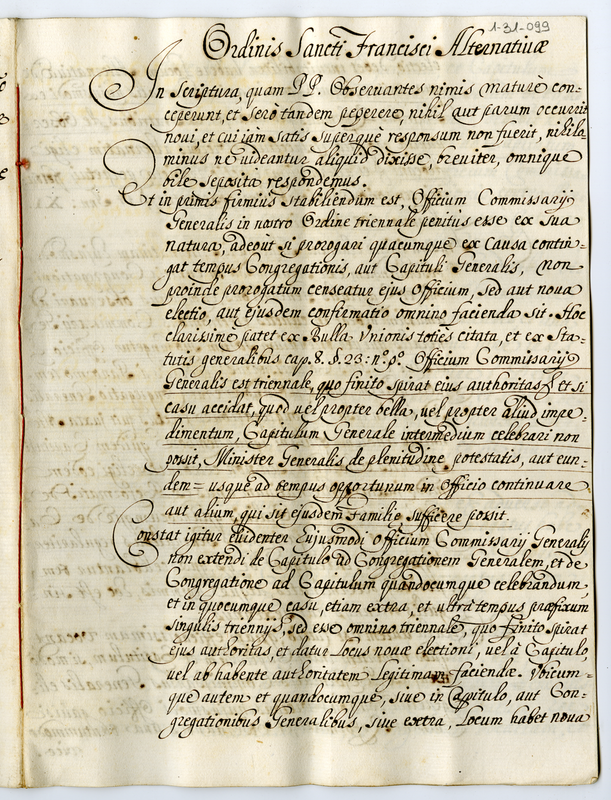 1-31-099
Ordinis Sancti Francisci Alternativæ
In scriptura, quam PP. Observantes nimis maturè con=
ceperunt, et serò tandem peperere, nihil aut parum occurrit
novi, et cui iam satis superquè responsum non fuerit, nihilo=
minus nè videantur aliquid dixisse, breviter, omnique
bile seposita respondemus.
Et in primis firmius stabiliendum est, Officium Commissarij
Generalis in nostro Ordine triennale penitus esse ex sua
natura, adeòut si prorogari quacumque ex causa contin=
gat tempus Congregationis, aut Capituli Generalis, non
proinde prorogatum censeatur ejus Officium, sed aut nova
electio, aut ejusdem confirmatio omnino facienda sit. Hoc
clarissimè patet ex Bulla Unionis toties citata, et ex Sta=
tutis generalibus cap. 8. §. 23: nº. pº. Officium Commissarij
Generalis est triennale, quo finito spirat eius authoritas, et si
casu accidat, quod vel propter bella, vel propter aliud impe=
dimentum, Capitulum Generale intermedium celebrari non
possit, Minister Generalis de plenitudine potestatis, aut eun=
dem= usque ad tempus opportunum in Officio continuare
aut alium, qui sit ejusdem Familie sufficere possit.
Constat igitur evidenter Ejusmodi officium Commissarij Generalis
non extendi de Capitulo ad Congregationem Generalem, et de
Congregatione ad Capitulum quandocumque celebrandum,
et in quocumque casu, etiam extra, et ultra tempus præfixum
singulis triennijs, sed esse omnino triennale, quo finito spirat
ejus authoritas, et datur Locus novæ electioni, vel à Capitulo,
vel ab habente authoritatem Legitimam faciendæ. Vbicum=
que autem et quandocumque, sive in Capitulo, aut Con=
gregationibus Generalibus, sive extra, Locum habet nova